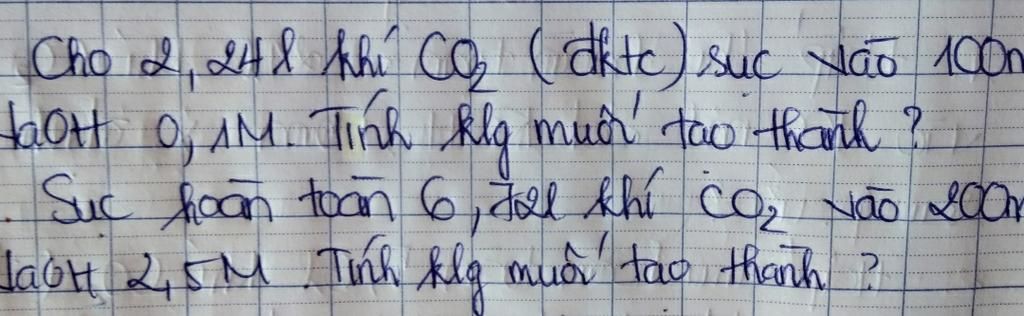 Cho 2,24l khí CO2 (đktc) sục vào 100m
NaOH 0,1M. Tính klg muối tạo thành?
. Sục hoàn toàn 6,72l khí CO2 vào 200m
NaOH 2,5M. Tính klg muối tạo thành?